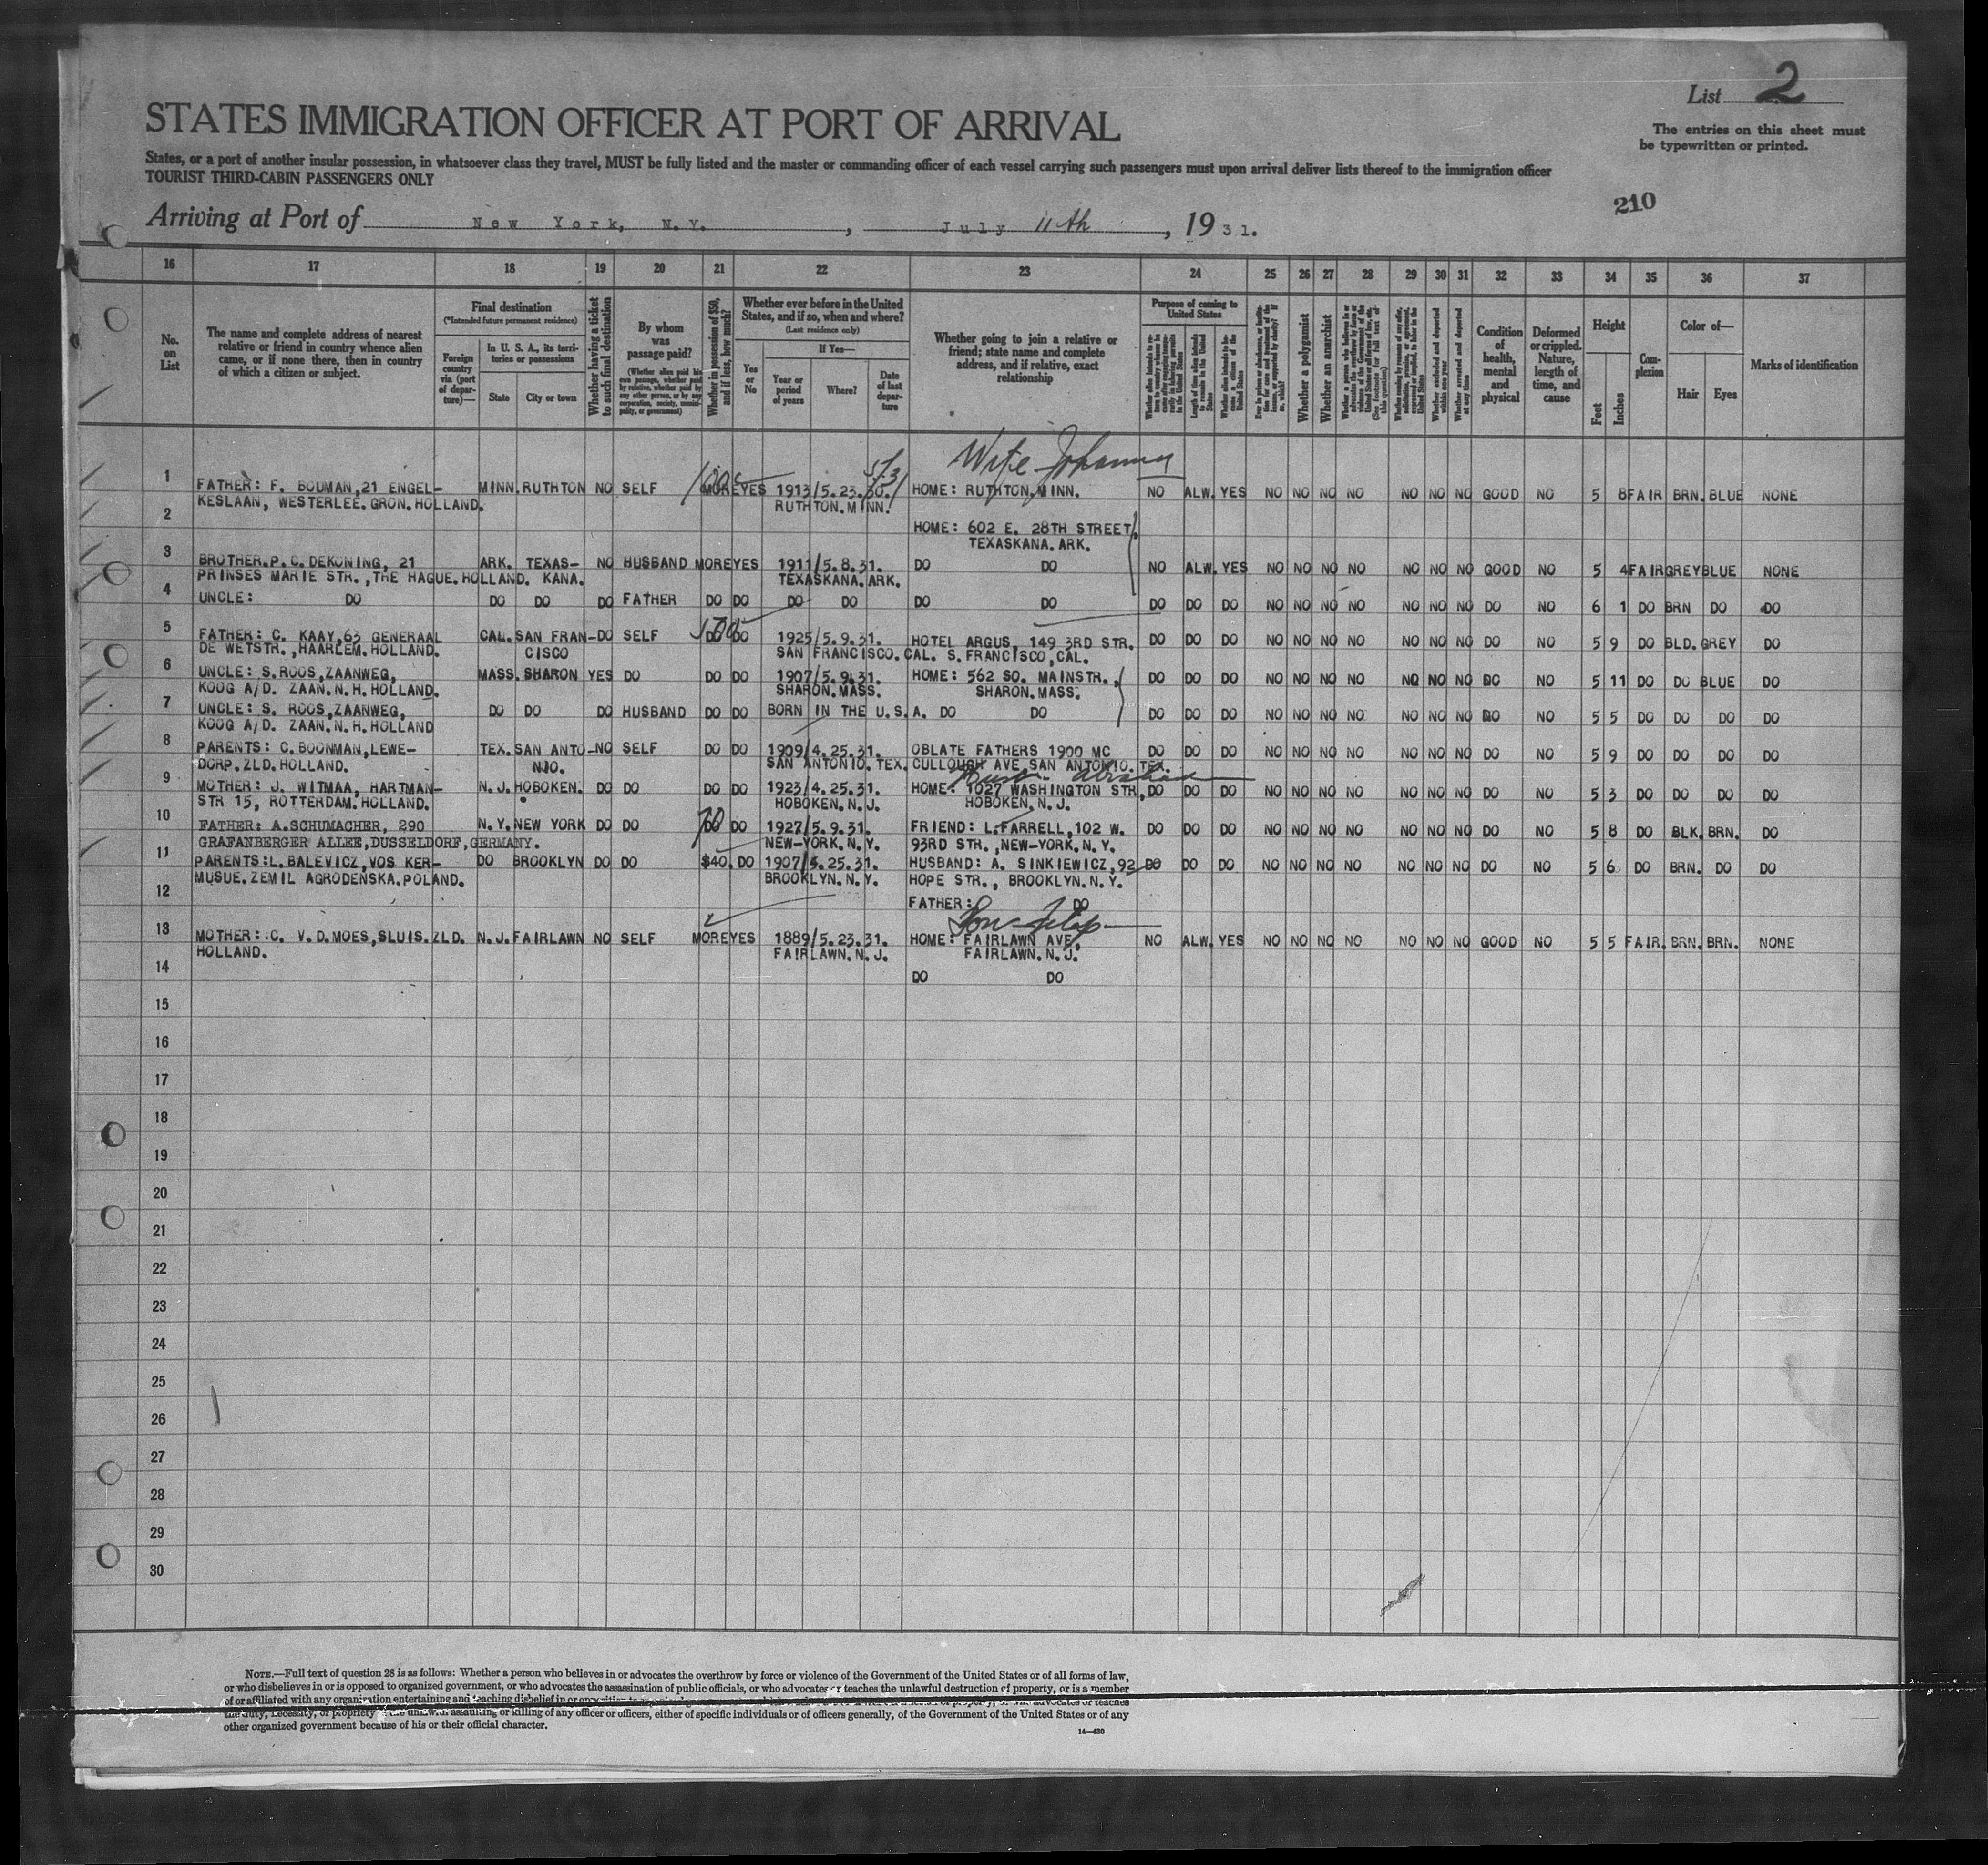 List 2
STATES IMMIGRATION OFFICER AT PORT OF ARRIVAL
The entries on this sheet must
be typewritten or printed.
States, or a port of another insular possession, in whatsoever class they travel, MUST be fully listed and the master or commanding officer of each vessel carrying such passengers must upon arrival deliver lists thereof to the immigration officer
TOURIST THIRD-CABIN PASSENGERS ONLY
210
Arriving at Port of New York, N.Y. , July 11th , 1931.
16 17 18 19 20 21 22 23 24 25 26 27 28 29 30 31 32 33 34 35 36 37
No. on List
The name and complete address of nearest relative or friend in country whence alien came, or if none there, then in country of which a citizen or subject.
Final destination
(*Intended future permanent residence)
Foreign country via (port of departure)—
In U. S. A., its territories or possessions
State
City or town
Whether having a ticket to such final destination
By whom was passage paid?
(Whether alien paid his own passage, whether paid by relative, whether paid by any other person, or by any corporation, society, municipality, or government)
Whether in possession of $50, and if less, how much?
Whether ever before in the United States, and if so, when and where?
(Last residence only)
Yes or No
If Yes—
Year or period of years
Where?
Date of last departure
Whether going to join a relative or friend; state name and complete address, and if relative, exact relationship
Purpose of coming to United States
Whether a polygamist
Whether an anarchist
Whether excluded and deported within one year
Whether arrested and deported at any time
Condition of health, mental and physical
Deformed or crippled. Nature, length of time, and cause
Height
Feet
Inches
Complexion
Color of—
Hair
Eyes
Marks of identification
Wife Johanna
1 FATHER: F. BOUMAN, 21 ENGEL- MINN. RUTHTON NO SELF MORE YES 1913/5.23.30. HOME: RUTHTON, MINN. NO ALW. YES NO NO NO NO NO NO NO GOOD NO 5 8 FAIR BRN. BLUE NONE
KESLAAN, WESTERLEE. GRON. HOLLAND. RUTHTON. MINN.
2 HOME: 602 E. 28TH STREET,
TEXASKANA. ARK.
3 BROTHER. P. C. DEKONING, 21 ARK. TEXAS- NO HUSBAND MORE YES 1911/5.8.31. DO DO NO ALW. YES NO NO NO NO NO NO NO GOOD NO 5 4 FAIR GREY BLUE NONE
PRINSES MARIE STR., THE HAGUE. HOLLAND. KANA. TEXASKANA. ARK.
4 UNCLE: DO DO DO DO FATHER DO DO DO DO DO DO DO DO DO NO NO NO NO NO NO NO DO NO 6 1 DO BRN DO DO
5 FATHER: C. KAAY, 63 GENERAAL CAL. SAN FRAN- DO SELF DO DO 1925/5.9.31. HOTEL ARGUS, 149 3RD STR. DO DO DO NO NO NO NO NO NO NO DO NO 5 9 DO BLD. GREY DO
DE WETSTR., HAARLEM. HOLLAND. CISCO SAN FRANCISCO. CAL. S. FRANCISCO, CAL.
6 UNCLE: S. ROOS, ZAANWEG, MASS. SHARON YES DO DO DO 1907/5.9.31. HOME: 562 SO. MAINSTR., DO DO DO NO NO NO NO NO NO NO DO NO 5 11 DO DO BLUE DO
KOOG A/D. ZAAN. N. H. HOLLAND. SHARON. MASS. SHARON. MASS.
7 UNCLE: S. ROOS, ZAANWEG, DO DO DO HUSBAND DO DO BORN IN THE U.S.A. DO DO DO DO DO NO NO NO NO NO NO NO DO NO 5 5 DO DO DO DO
KOOG A/D. ZAAN. N. H. HOLLAND
8 PARENTS: C. BOONMAN, LEWE- TEX. SAN ANTO- NO SELF DO DO 1909/4.25.31. OBLATE FATHERS 1900 MC DO DO DO NO NO NO NO NO NO NO DO NO 5 9 DO DO DO DO
DORP. ZLD. HOLLAND. NIO. SAN ANTONIO. TEX. CULLOUGH AVE, SAN ANTONIO. TEX.
9 MOTHER: J. WITMAA, HARTMAN- N. J. HOBOKEN. DO DO DO DO 1923/4.25.31. HOME: 1027 WASHINGTON STR, DO DO DO NO NO NO NO NO NO NO DO NO 5 3 DO DO DO DO
STR 15, ROTTERDAM. HOLLAND. HOBOKEN, N. J. HOBOKEN, N. J.
10 FATHER: A. SCHUMACHER, 290 N. Y. NEW YORK DO DO 70 DO DO 1927/5.9.31. FRIEND: L. FARRELL, 102 W. DO DO DO NO NO NO NO NO NO NO DO NO 5 8 DO BLK. BRN. DO
GRAFANBERGER ALLEE, DUSSELDORF, GERMANY. NEW-YORK. N. Y. 93RD STR., NEW-YORK. N. Y.
11 PARENTS: L. BALEVICZ, VOS KER- DO BROOKLYN DO DO $40. DO 1907/4.25.31. HUSBAND: A. SINKIEWICZ, 92 DO DO DO NO NO NO NO NO NO NO DO NO 5 6 DO BRN. DO DO
MUSUE. ZEMIL AGRODENSKA. POLAND. BROOKLYN. N. Y. HOPE STR., BROOKLYN. N. Y.
12 FATHER: DO
13 MOTHER: C. V. D. MOES, SLUIS. ZLD. N. J. FAIRLAWN NO SELF MORE YES 1889/5.23.31. HOME: FAIRLAWN AVE, NO ALW. YES NO NO NO NO NO NO NO GOOD NO 5 5 FAIR. BRN. BRN. NONE
HOLLAND. FAIRLAWN. N. J. FAIRLAWN. N. J.
14 DO DO
15
16
17
18
19
20
21
22
23
24
25
26
27
28
29
30
NOTE.—Full text of question 28 is as follows: Whether a person who believes in or advocates the overthrow by force or violence of the Government of the United States or of all forms of law,
or who disbelieves in or is opposed to organized government, or who advocates the assassination of public officials, or who advocates or teaches the unlawful destruction of property, or is a member
of or affiliated with any organization entertaining and teaching disbelief in or
assaulting or killing of any officer or officers, either of specific individuals or of officers generally, of the Government of the United States or of any
other organized government because of his or their official character.
14—430